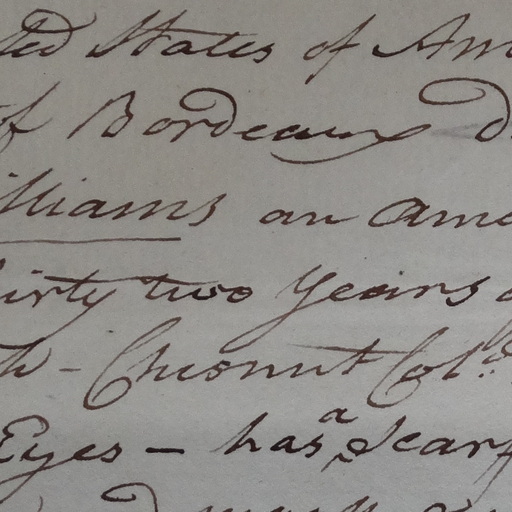 ted States of Am
of Bordeaux d
illiams an Ame
hirty two Years o
th - Chesnut Col.d
Eyes - has a Scarf